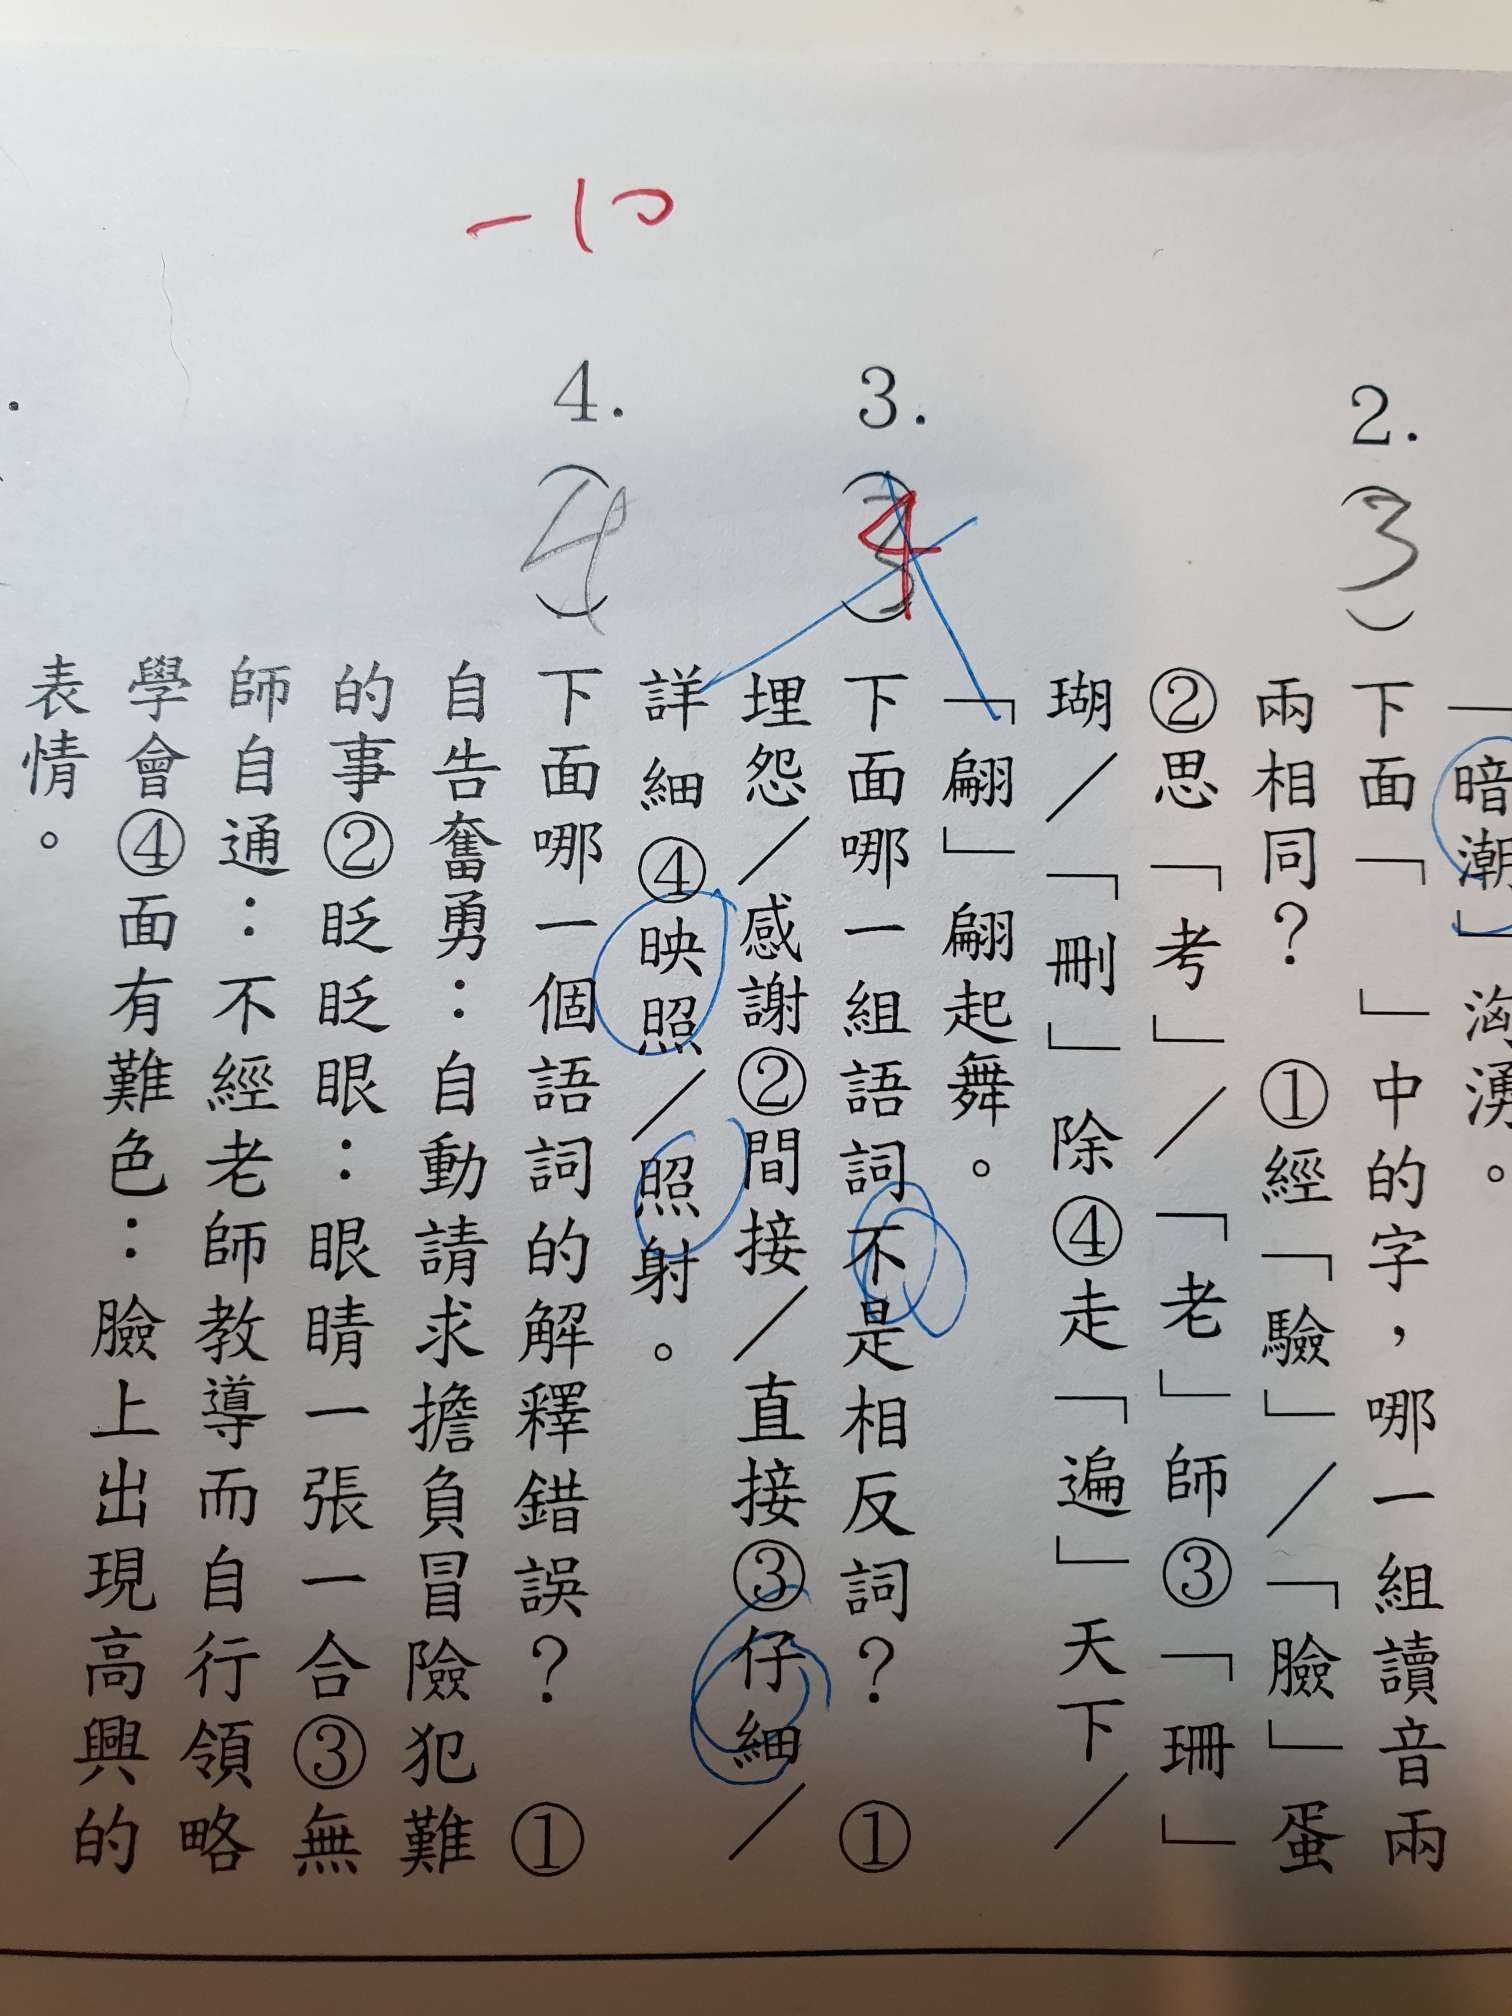 「暗潮」洶湧。
2.(3)下面「　」中的字，哪一組讀音兩
兩相同？　①經「驗」／「臉」蛋
②思「考」／「老」師③「珊」
瑚／「刪」除④走「遍」天下／
「翩」翩起舞。
3.(3)4下面哪一組語詞不是相反詞？　①
埋怨／感謝②間接／直接③仔細／
詳細④映照／照射。
4.(4)下面哪一個語詞的解釋錯誤？　①
自告奮勇：自動請求擔負冒險犯難
的事②眨眨眼：眼睛一張一合③無
師自通：不經老師教導而自行領略
學會④面有難色：臉上出現高興的
表情。
-10